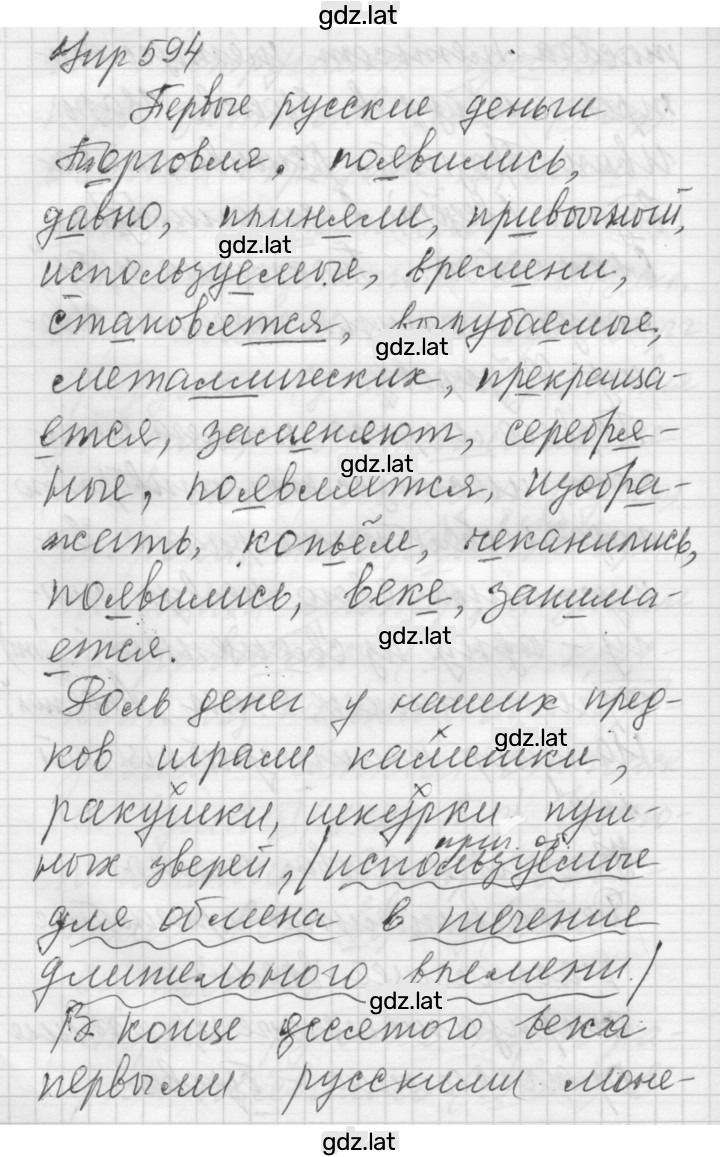 gdz.lat
Упр 594
Первые русские деньги
Торговля, появились,
давно, приняли, привычный,
gdz.lat
используемые, времени,
становятся, вырубаемые,
gdz.lat
металлических, прекраща-
ется, заменяют, серебря-
gdz.lat
ные, появляется, изобра-
жать, копьём, чеканились,
появились, веке, занима-
gdz.lat
ется.
Роль денег у наших пред-
ков играли камешки,
gdz.lat
ракушки, шкурки пуш-
прич. об.
ных зверей, /используемые
для обмена в течение
длительного времени./
gdz.lat
В конце десятого века
первыми русскими моне-
gdz.lat